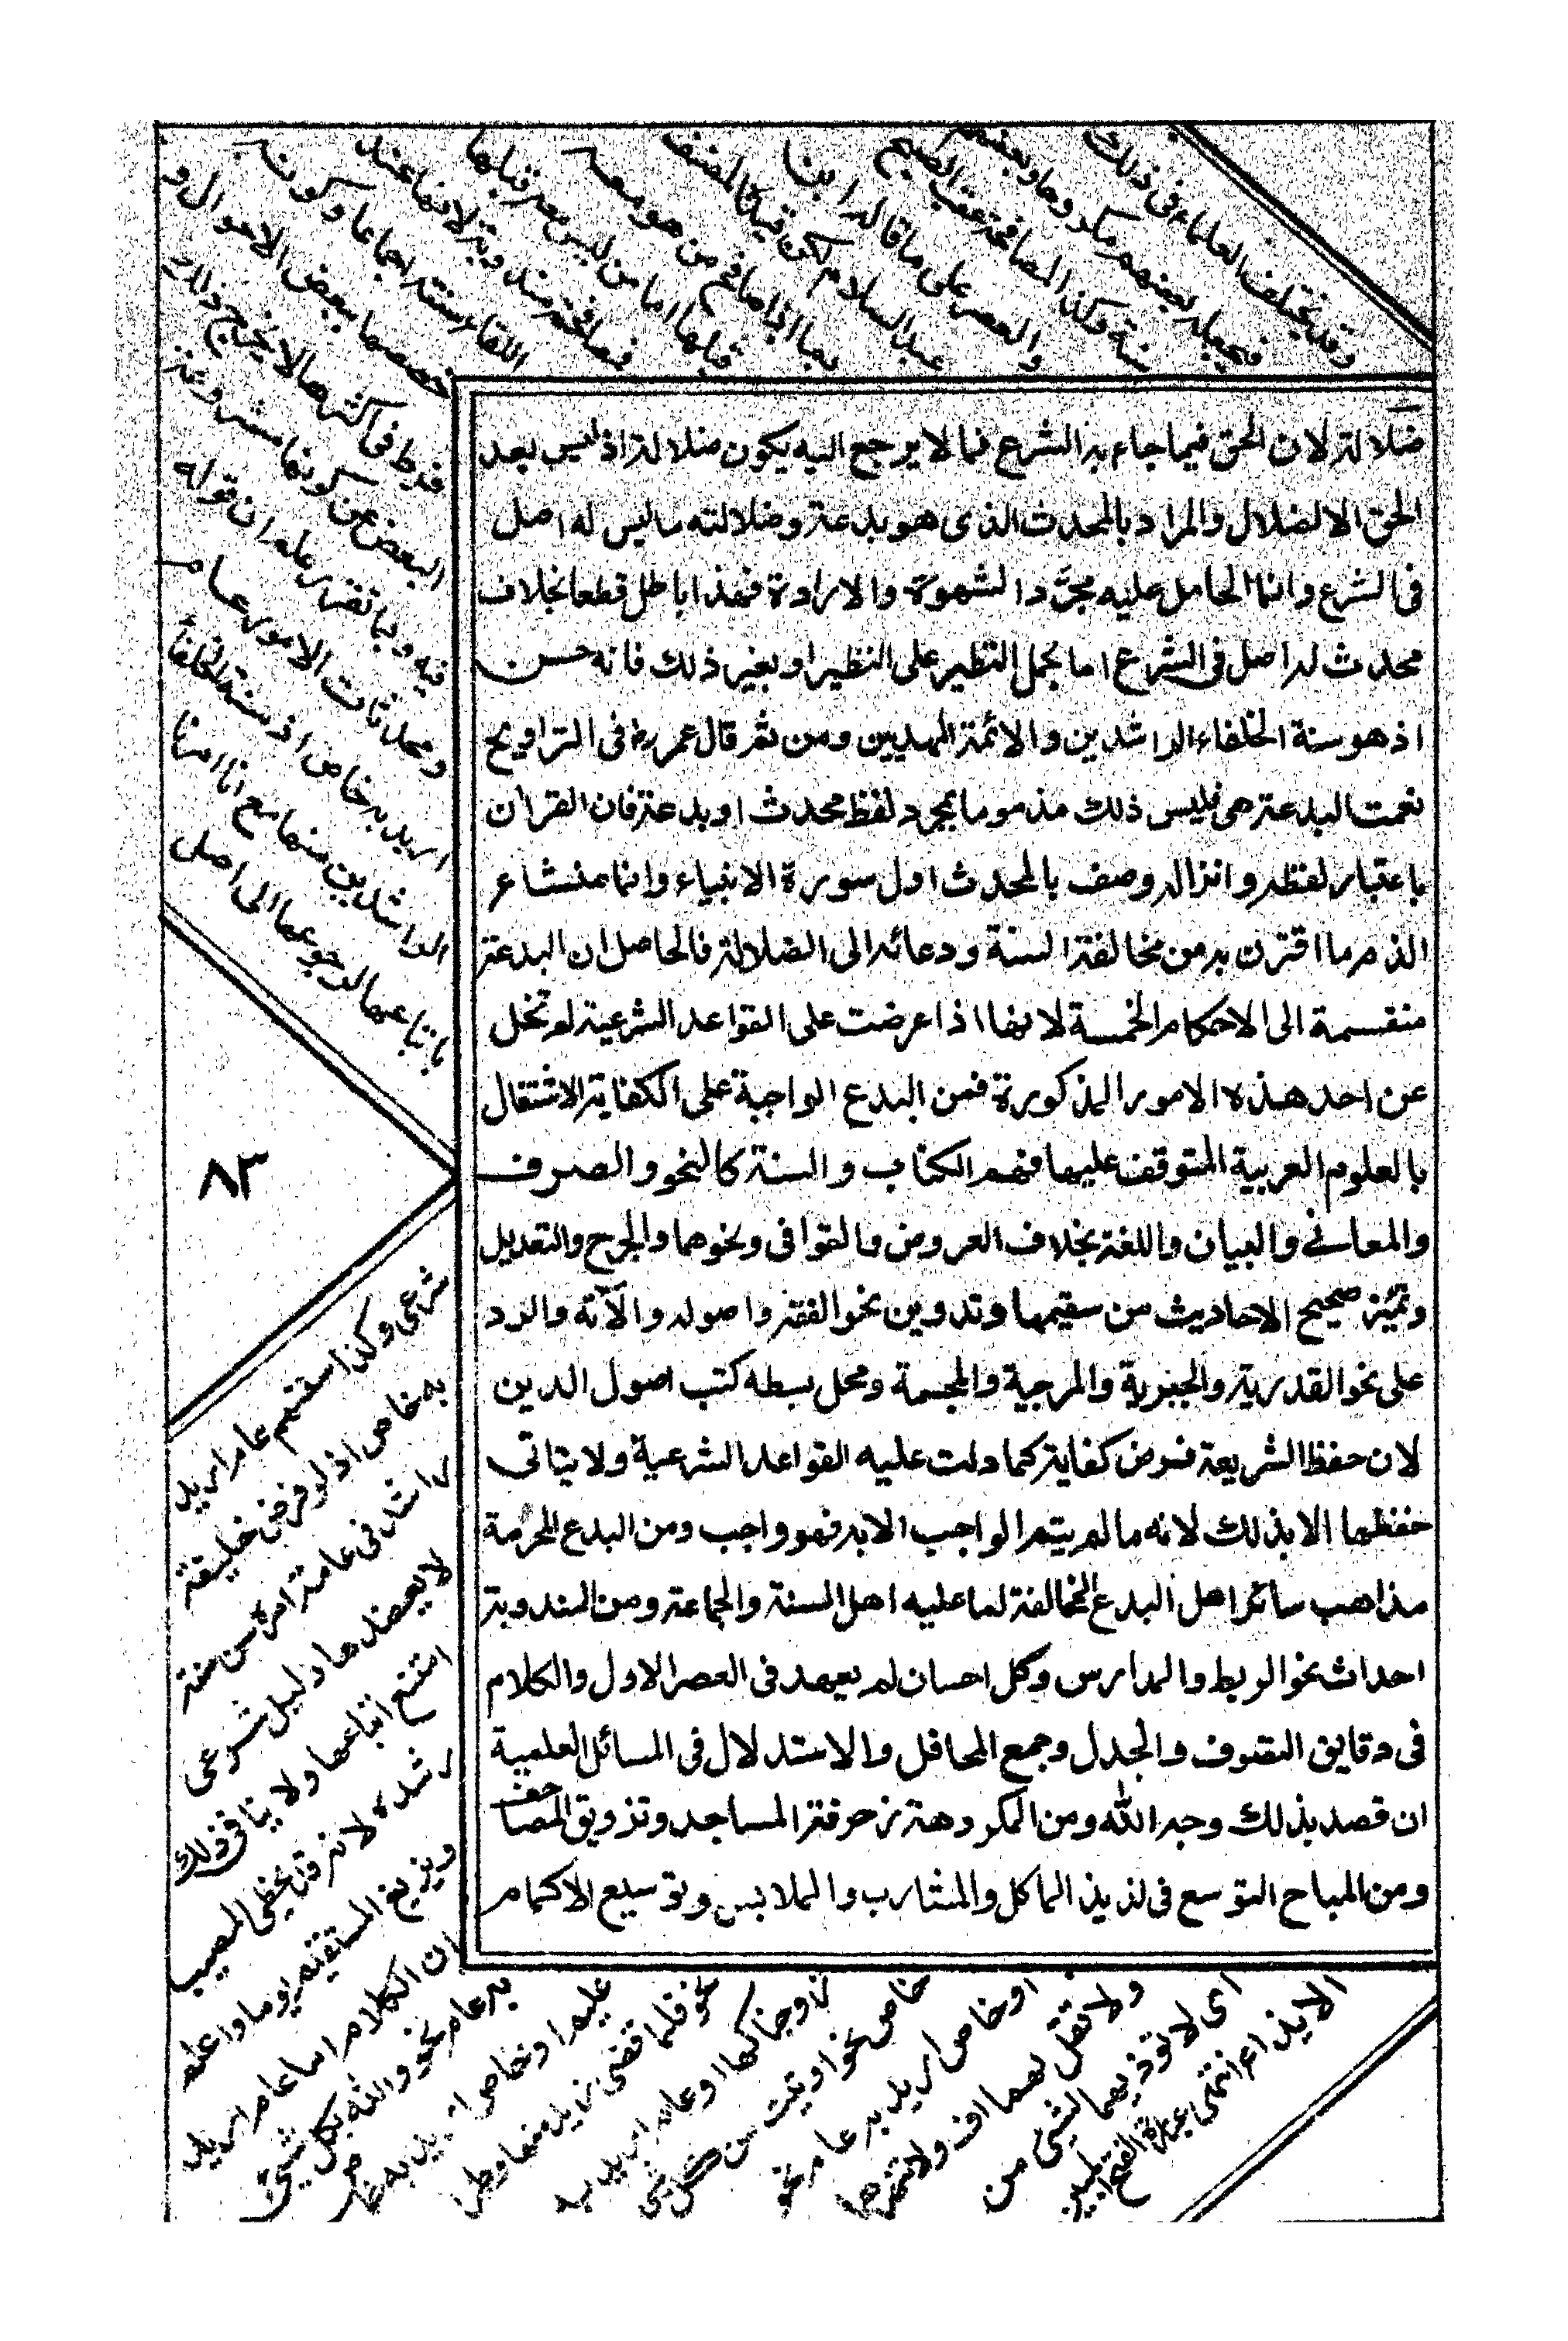 ضلالة لان الحق فيما جاء به الشرع فما لا يرجع اليه يكون ضلالة اذ ليس بعد
الحق الا الضلال والمراد بالمحدث الذي هو بدعة وضلالته ما ليس له اصل
في الشرع وانما الحامل عليه مجرَّد الشهوة والارادة فهذا باطل قطعا بخلاف
محدث له اصل في الشرع اما بحمل النظير على النظير او بغير ذلك فانه حسن
اذ هو سنة الخلفاء الراشدين والائمة المهديين ومن ثم قال عمر رض في التراويح
نعمت البدعة هي فليس ذلك مذموما بمجرد لفظ محدث او بدعة فان القرآن
باعتبار لفظه وانزاله وصف بالمحدث اول سورة الانبياء وانما منشاء
الذم ما اقترن به من مخالفة السنة ودعائه الى الضلالة فالحاصل ان البدعة
منقسمة الى الاحكام الخمسة لانها اذا عرضت على القواعد الشرعية لم تخل
عن احد هذه الامور المذكورة فمن البدع الواجبة على الكفاية الاشتغال
بالعلوم العربية المتوقف عليها فهم الكتاب والسنة كالنحو والصرف
والمعاني والبيان واللغة بخلاف العروض والقوافي ونحوهما والجرح والتعديل
وتميّز صحيح الاحاديث من سقيمها وتدوين نحو الفقه واصوله والآته والرد
على نحو القدرية والجبرية والمرجية والمجسمة ومحل بسطه كتب اصول الدين
لان حفظ الشريعة فرض كفاية كما دلت عليه القواعد الشرعية ولا يتاتى
حفظها الا بذلك لانه ما لم يتم الواجب الا به فهو واجب ومن البدع المحرمة
مذاهب سائر اهل البدع المخالفة لما عليه اهل السنة والجماعة ومن المندوبة
احداث نحو الربط والمدارس وكل احسان لم يعهد في العصر الاول والكلام
في دقايق التصوف والجدل وجمع المحافل والاستدلال في المسائل العلمية
ان قصد بذلك وجه الله ومن المكروهة زخرفة المساجد وتزويق المصاحف
ومن المباح التوسع في لذيذ الماكل والمشارب والملابس وتوسيع الاكمام
وقد يختلف العلماء في ذلك
فيجعله بعضهم مكروها وبعضهم
سنة وكذا المصافحة عقب الصبح
والعصر على ما قاله ابن
عبد السلام لكن قيده المصنف
بما اذا صافح من هو معه
قبلها اما من ليس معه قبلها
فمصافحته مندوبة لانها عند
اللقاء سنة اجماعا وكونه
خصها ببعض الاحوال و
فرط في اكثرها لا يخرج ذلك
البعض عن كونها مشروعة
فيه وبما تقرر علم ان قوله
ومحدثات الامور عام
اريد به خاص اذ سنة الخلفاء
الراشدين منها مع انا امرنا
باتباعها لرجوعها الى اصل
٨٣
شرعي وكذا سنتهم عام اريد
به خاص اذ لو فرض خليفة
راشد في عامة امره سن سنة
لا يعضدها دليل شرعي
امتنع اتباعها ولا ينافي ذلك
رشده لانه قد يخطي المصيب
ويزيغ المستقيم يوما واعلم
ان الكلام اما عام اريد
به عام نحو والله بكل شيئ
عليم او خاص اريد به خاص
نحو فلما قضى زيد منها وطرا
زوجناكها او عام اريد به
خاص نحو اوتيت من كل شئ
او خاص اريد به عام نحو
ولا تقل لهما اف ولا تنهرهما
اي لا تؤذيهما بشئ من
الايذاء انتهى عبارة الفتح المبين